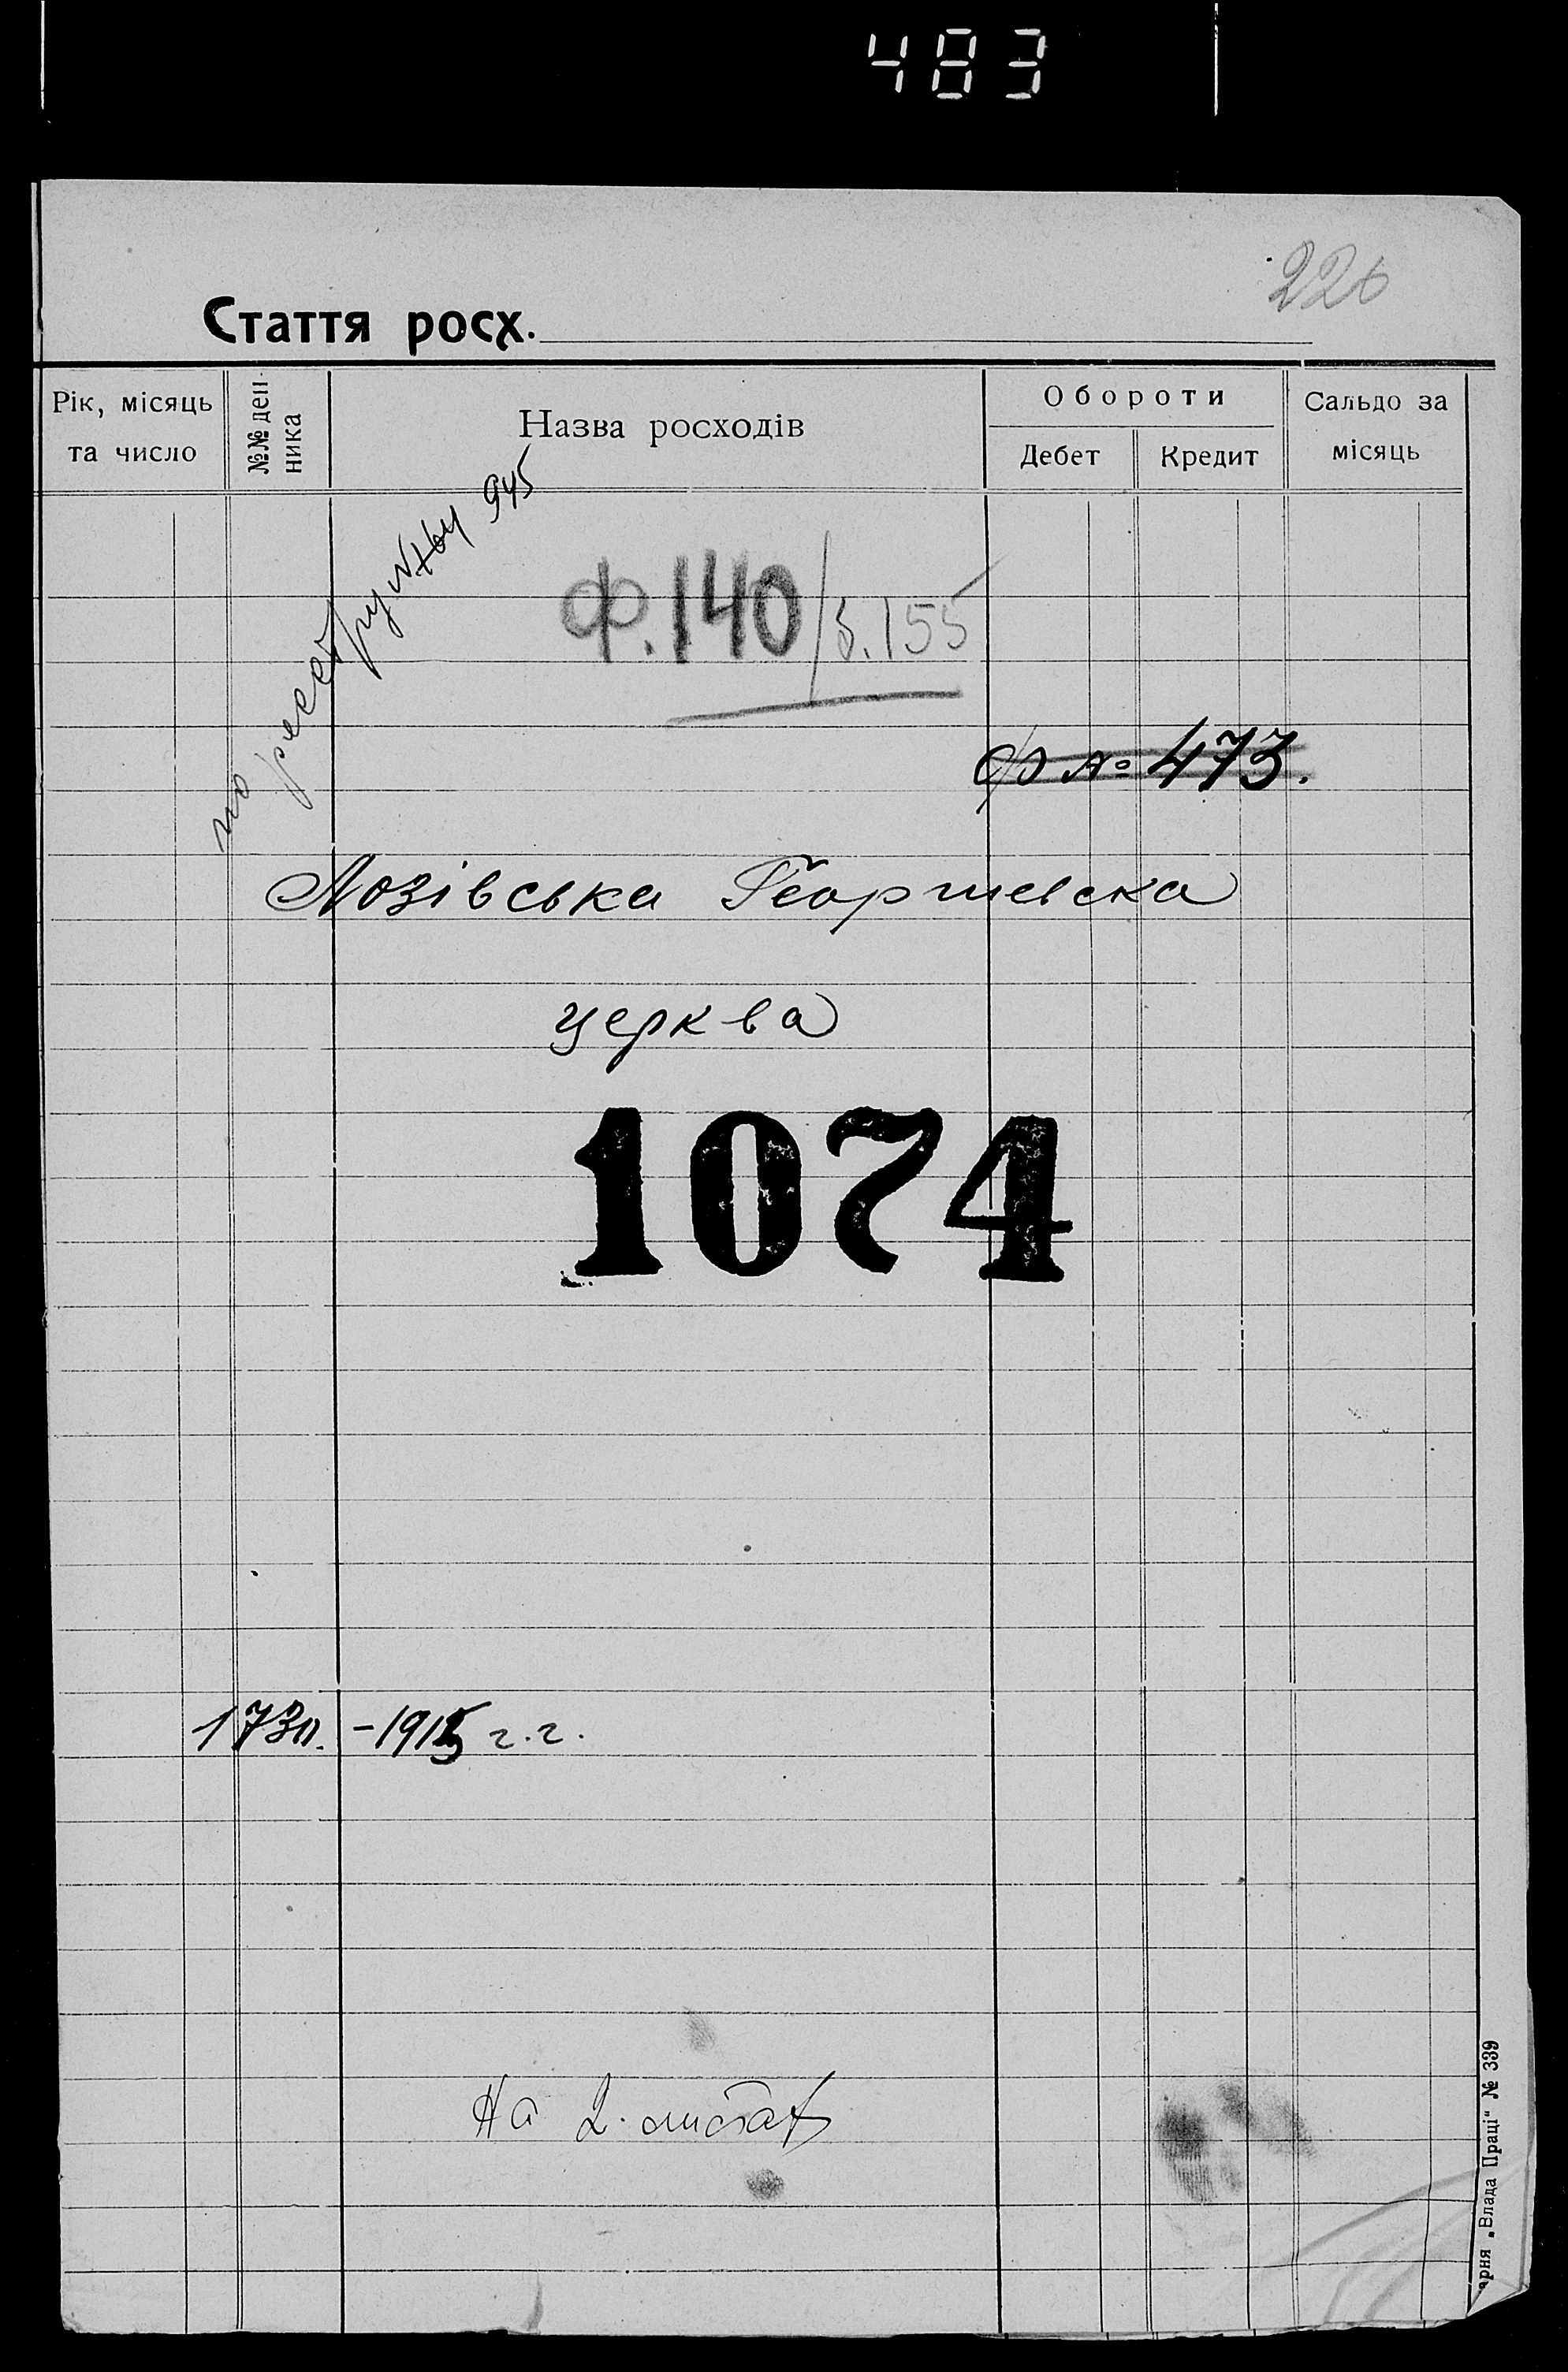 483
226
Стаття росх.
Рік, місяць та число
№№ ден-
ника
Назва росходів
Обороти
Дебет
Кредит
Сальдо за місяць
по реестру 945
ф.140/б.155
ф № 473.
Лозівська Георгиевска
церква
1074
1730. -1915 г.г.
На 2. листах
арня „Влада Праці" № 339